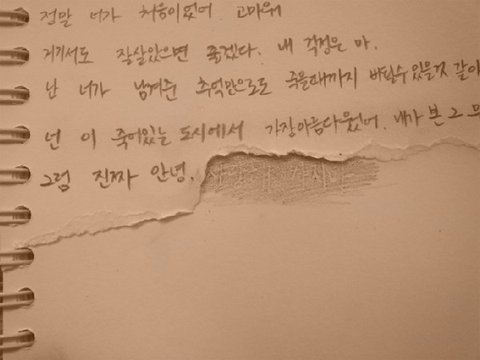 정말 너가 처음이였어. 고마워
거기서도 잘살았으면 좋겠다. 내 걱정은 마.
난 너가 남겨준 추억만으로도 죽을때까지 버틸수있을것 같아
넌 이 죽어있는 도시에서 가장아름다웠어. 내가 본 그
그럼 진짜 안녕.